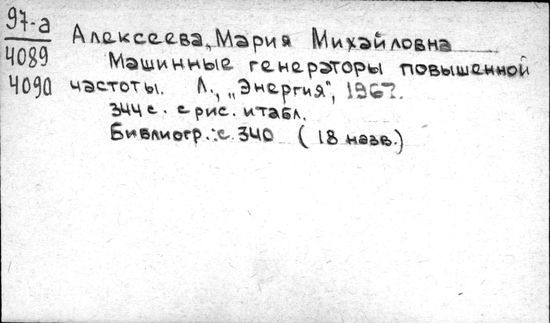 97-а
4089
4090
Алексеева, Мария Михайловна
Машинные генераторы повышенной
частоты. Л., „Энергия", 1967.
344 с. с рис. и табл.
Библиогр.: с. 340 (18 назв.)